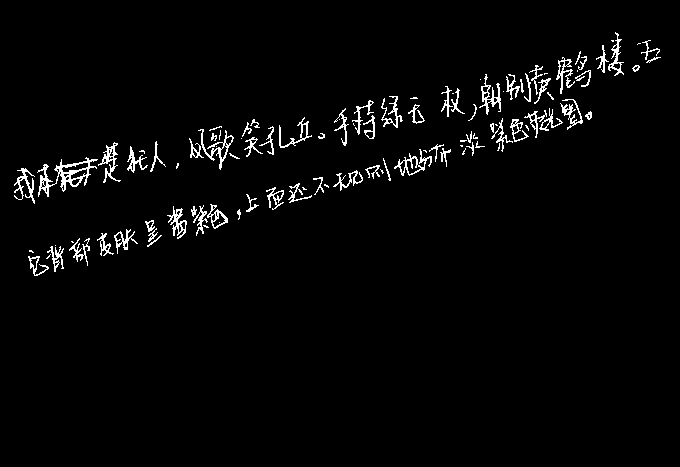 我本楚狂人，凤歌笑孔丘。手持绿玉杖，朝别黄鹤楼。五
它背部皮肤呈酱紫色，上面还不规则地分布淡紫色斑图。